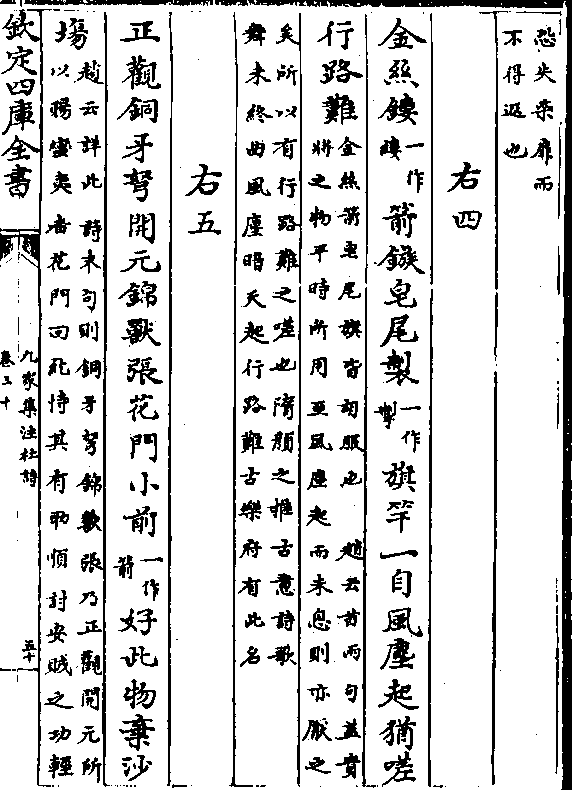 恐失而
不得返也
右四
金絲鏤一作縷箭鏃皂尾製一作掣旗竿一自風塵起猶嗟
行路難金絲箭皂尾旗皆胡服也 趙云首兩句蓋貴
將之物平時所用至風塵起而未息則亦厭之
矣所以有行路難之嗟也隋顏之推古意詩歌
舞未終曲風塵暗天起行路難古樂府有此名
右五
正觀銅牙弩開元錦獸張花門小前一作箭好此物棄沙
塲趙云詳此詩末句則銅牙弩錦獸張乃正觀開元所
以賜蠻夷者花門回紇恃其有助順討安賊之功輕
欽定四庫全書
九家集注杜詩
卷三十
五十